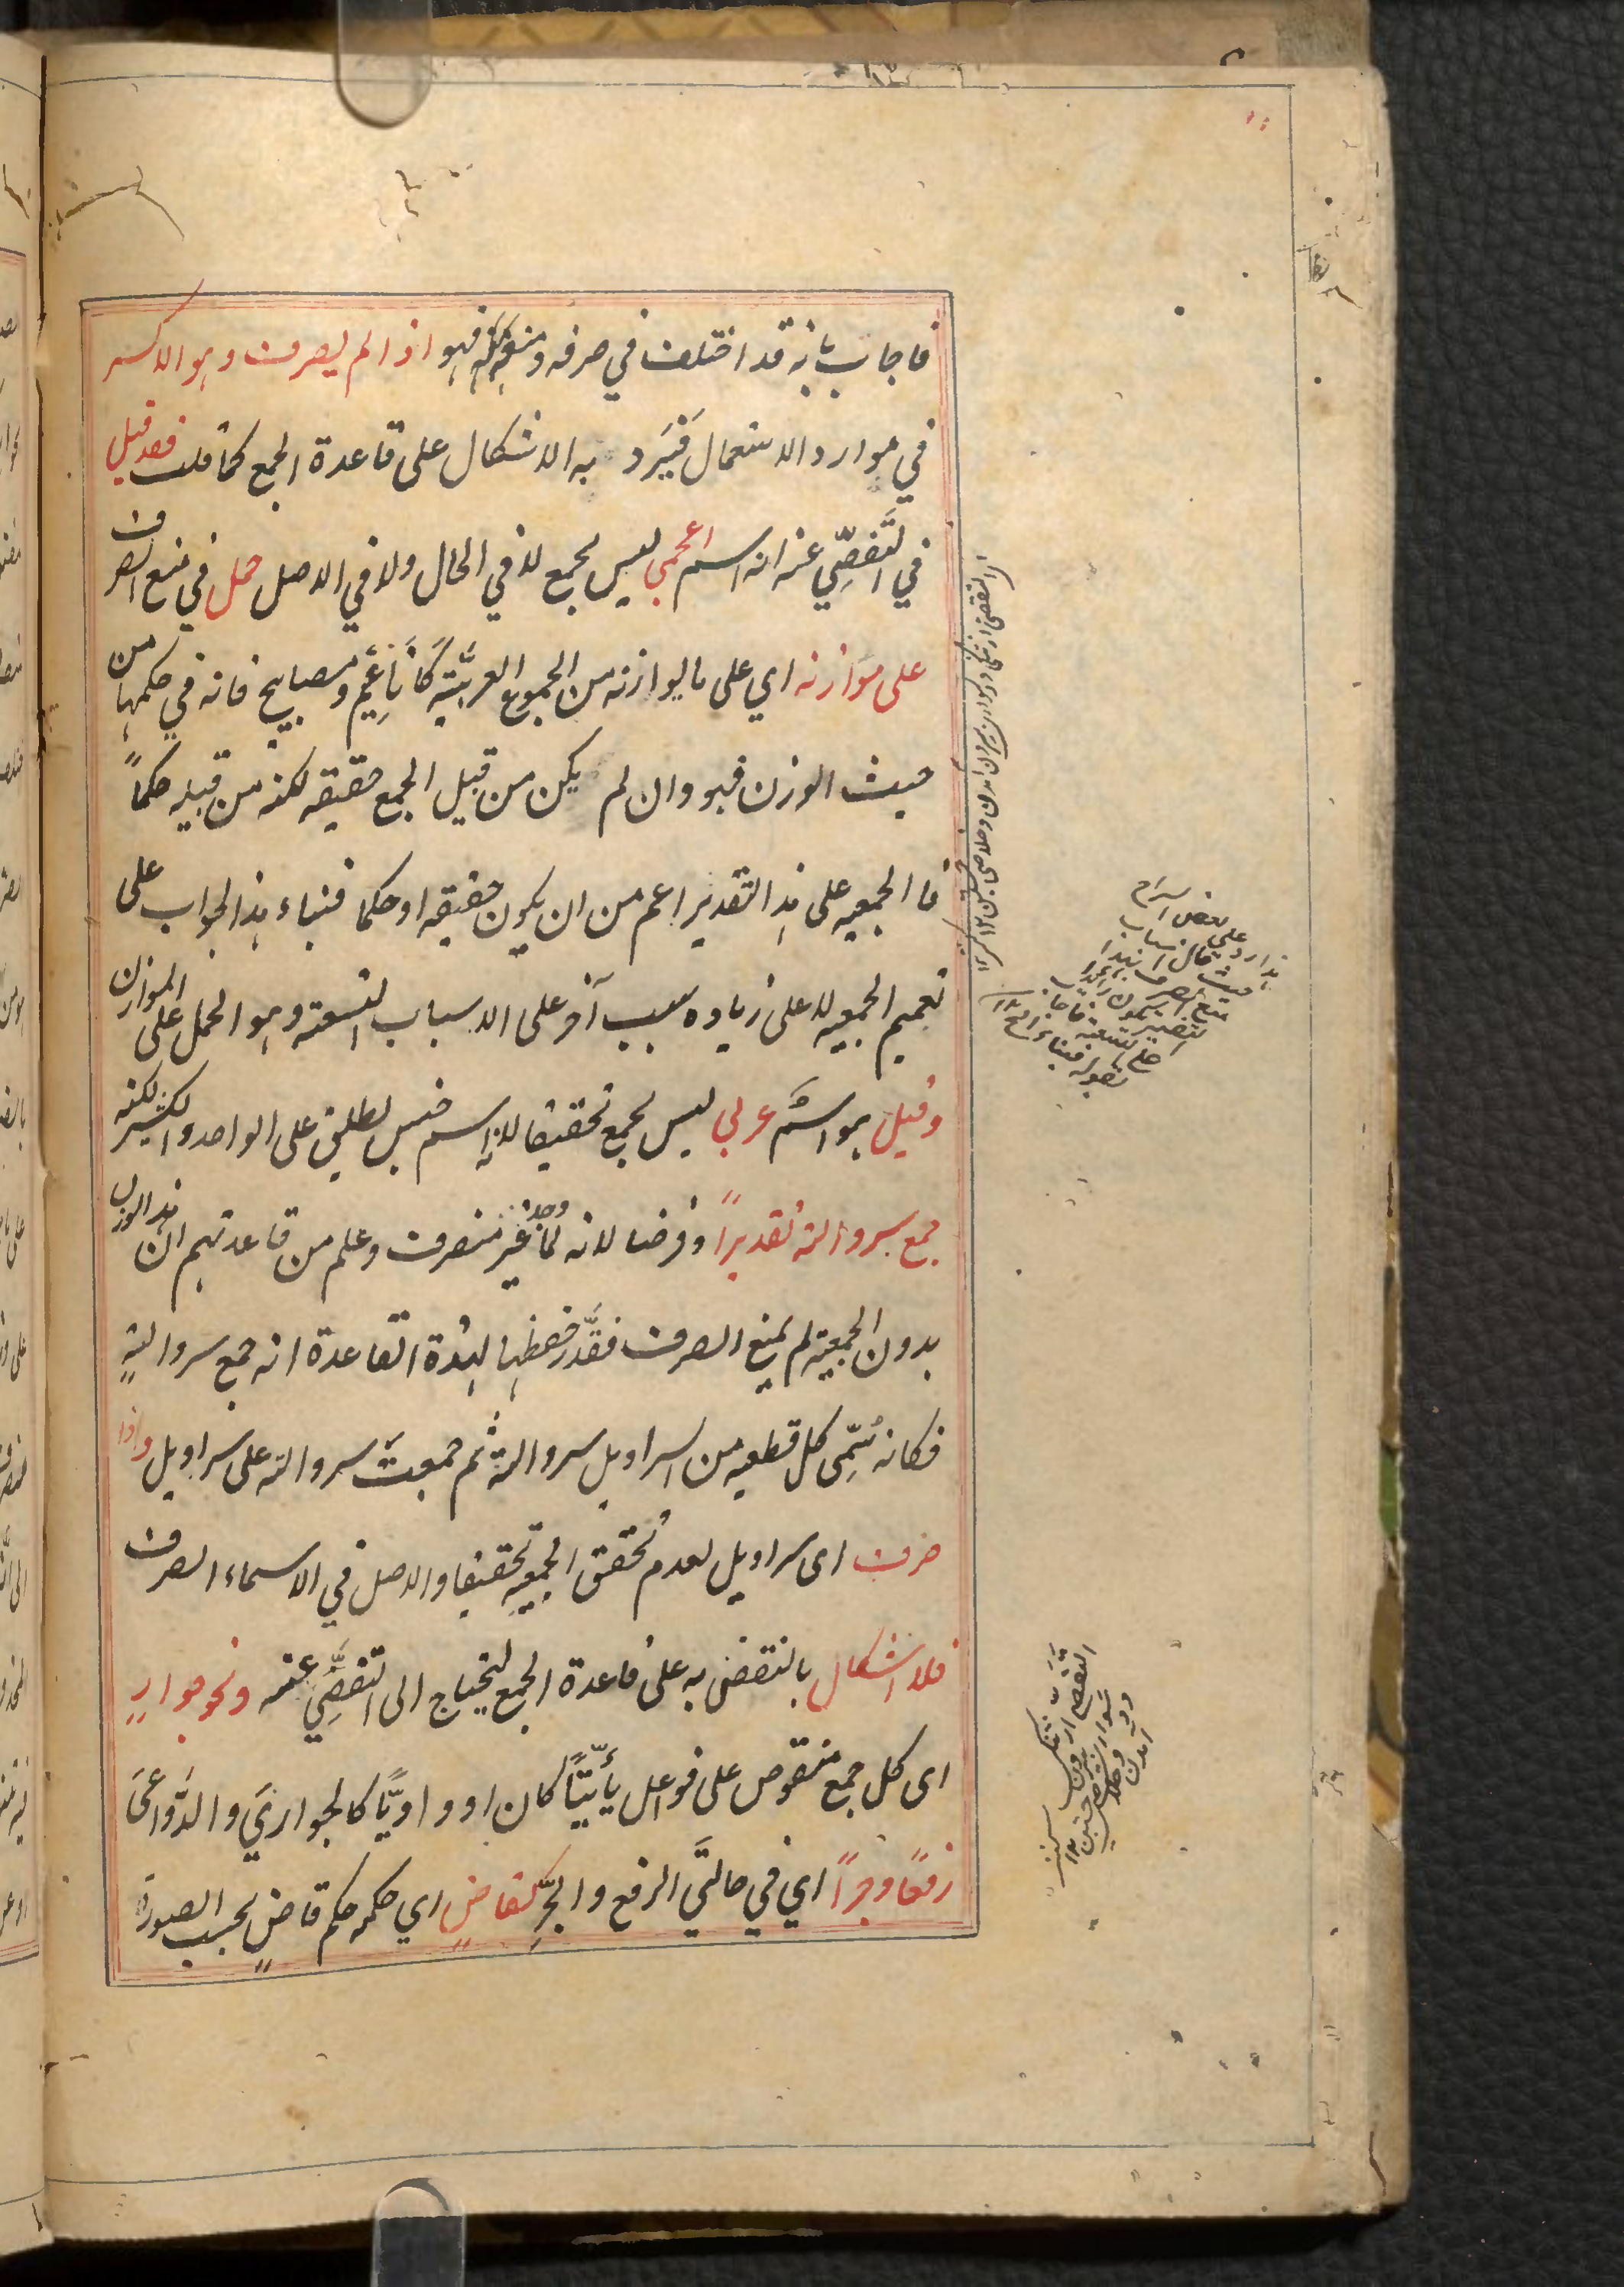 فاجاب بانه قد اختلف في صرفه ومنعه فهو اذا لم يصرف وهو الاكثر
في موارد الاستعمال فَيَرد به الاشكال على قاعدة الجمع كما قلت فقد قيل
في التَّفصِّي عنه انه اسم اعجمي ليس بجمع لا في الحال ولا في الاصل حمل في منع الصرف
على موازنه اي على ما يوازنه من الجموع العربيَّة كَأناعِيم ومصابيح فانه في حكمها من
حيث الوزن فهو وان لم يكن من قبيل الجمع حقيقه لكنه من قبيله حكماً
فا الجمعيه على هذا التقدير اعم من ان يكون حقيقه او حكما فبناء هذا الجواب على
تعميم الجمعيه لا على زياده سبب آخر على الاسباب التسعته وهو الحمل على الموازن
وقيل هو اسم عربي ليس بجمع تحقيقا لانه اسم جنس يطلق على الواحد والكثير لكنه
جمع سروالته تقديراً وفرضا لانه لما وجد غير منصرف وعلم من قاعدتهم ان هذا الوزن
بدون الجمعيته لم يمنع الصرف فقدَّر حفظها لهذة القاعدة انه جمع سروالتهٍ
فكانه سُمِّى كل قطعيه من السراويل سروالتة ثم جمعت سروالته على سراويل واذا
صرف اى سراويل لعدم تحقق الجمعيه تحقيقا والاصل في الاسماء الصرف
فلا اشكال بالنقض به على قاعدة الجمع ليحتاج الى التفصِّي عنه ونحو جوارٍ
اى كل جمع منقوص على فواعل يأئيًّا كان او واويًّا كالجواري والدَّواعى
رفعًا وجراً اي في حالتَي الرفع والجرِّ كقاضٍ اي حكمه حكم قاضٍ بحسب الصورة